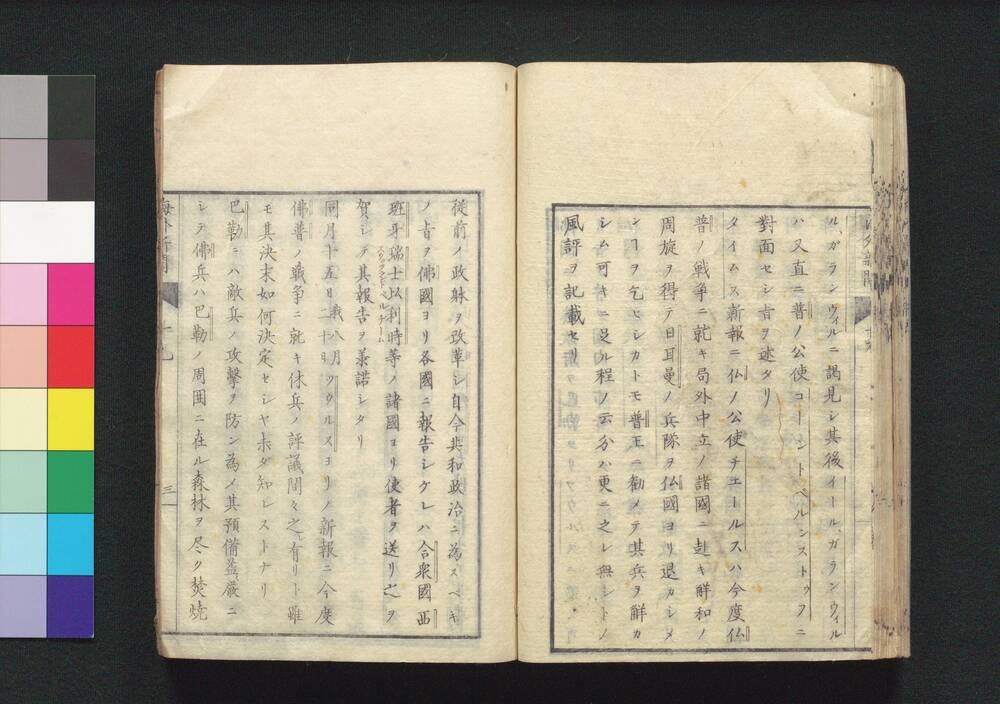 ルガランウィルニ謁見シ其後イールガランウィル
ハ又直ニ普ノ公使コーントベルンストゥフニ
對面セシ旨ヲ述タリ
タイムス新報ニ仏ノ公使チエールスハ今度仏
普ノ戦争ニ就キ局外中立ノ諸國ニ赴キ觧和ノ
周旋ヲ得テ日耳曼ノ兵隊ヲ仏國ヨリ退カシメ
ンヿヲ乞ヒシカトモ普王ニ勧メテ其兵ヲ觧カ
シム可キニ足ル程ノ云分ハ更ニ之レ無シトノ
風評ヲ記載セリ
從前ノ政躰ヲ改革シ自今共和政治ニ為スベキ
ノ旨ヲ佛國ヨリ各國ニ報告シケレハ合衆國西
班牙瑞士白利時等ノ諸國ヨリ使者ヲ送リ之ヲ
賀シテ其報告ヲ羕諾シタリ
同月十五日我八月二十日ツウルスヨリノ新報ニ今度
佛普ノ戦争ニ就キ休兵ノ評議間々之有リト雖
モ其決末如何決定セシヤ未ダ知レストナリ
巴勒ニハ敵兵ノ攻擊ヲ防ン為メ其預備益厳ニ
シテ佛兵ハ巴勒ノ周囲ニ在ル森林ヲ尽ク焚焼
三